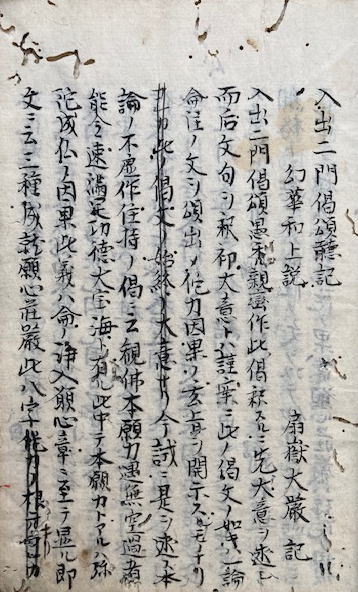 入出二門偈頌聽記
幻華和上説　扇嶽大嚴　記
入出二門偈頌愚禿親鸞作此偈釈スルニ先大意ヲ述シ
而后文句ヲ釈初大意トハ謹案ニ此ノ偈文ノ如キハ論
論注ノ文ヲ頌出メ他力因果ノ玄旨ヲ開示スルモノナリ
此ノ偈文ノ始終ノ大意ナリ今試ニ是ヲ述ヲ本
論ノ不虚作住持ノ偈ニ云観佛本願力遇無空過者
能令速満足功徳大宝海ト有ル此中テ本願力トアルハ弥
陀成仏ノ因果此義ハ論ノ浄入願心章ニ至テ显ル即
文ニ云三種成就願心莊嚴此八字他力ノ根